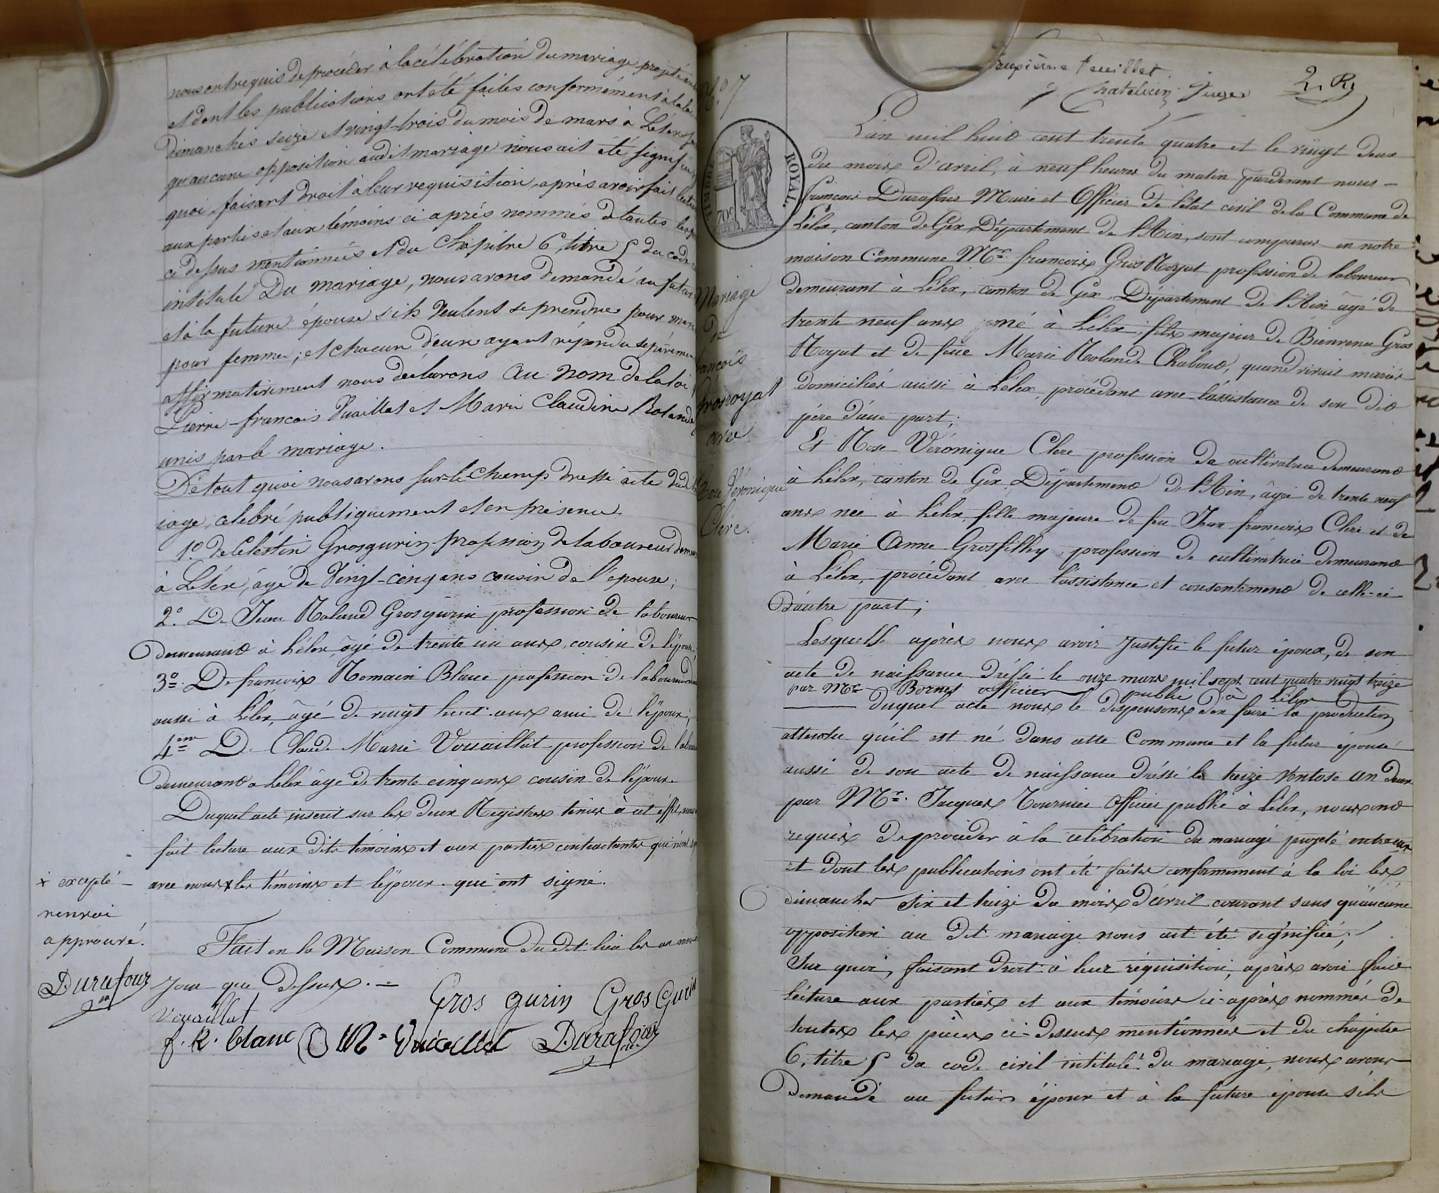 nous ont requis de procéder à la célébration du mariage projeté
et dont les publications ont été faites conformément à la loi
dimanches seize et vingt-trois du mois de mars à Lélex
qu'aucune opposition audit mariage nous ait été signifiée
quoi, faisant droit à leur requisition, après avoir fait lecture
aux parties et aux témoins ci après nommés de toutes les
ci dessus mentionnées et du Chapitre 6, titre 5 du code
intitulé Du mariage, nous avons demandé au futur
et à la future épouse s'ils veulent se prendre pour mari
pour femme; et chacun d'eux ayant répondu séparément
affirmativement nous déclarons au nom de la loi
Pierre-françois Vuaillat et Marie Claudine Roland
unis par le mariage.
De tout quoi nous avons sur-le-champ dressé acte dud
iage, célebré publiquement et en présence
1° de Célestin Grosgurin profession de laboureur dem
à Lélex, âgé de Vingt-cinq ans cousin de l'épouse;
2° D Jean Roland Grosgurin profession de laboureur
demeurant à Lélex âgé de trente un ans, cousin de l'épouse
3° D françois Romain Blanc profession de laboureur
aussi à Lélex âgé de vingt huit ans ami de l'époux;
4eme D Claude Marie Vouaillat profession de labou
demeurant à Lélex âgé de trente cinq ans cousin de l'époux
Duquel acte, inscrit sur les deux Registres tenus à cet effet,
fait lecture aux dits témoins et aux parties contractantes qui
avec nous x les témoins et l'époux qui ont signé.
x excepté
renvoi
approuvé.
Durafour
Fait en la Maison Commune du dit lieu les an mois
jour que dessus.
Vouaillat
Gros gurin Gros Gurin
f. R. blanc C M Vuaillat Durafour
Troisième feuillet
Chatelain Juge
2. R
N° 7
TIMBRE ROYAL.
70c
Mariage
de
françois
Grosnoyat
avec
Rose Véronique
Clerc.
L'an mil huit cent trente quatre et le vingt deux
du mois d'avril, à neuf heures du matin pardevant nous
françois Durafour Maire et Officier de l'état civil de la Commune de
Lélex, canton de Gex, Département de l'Ain, sont comparus en notre
maison Commune Mr. françois Gros Noyat profession de laboureur
demeurant à Lélex, canton de Gex, Département de l'Ain âgé de
trente neuf ans, né à Lélex fils majeur de Bienvenu Gros
Noyat et de feue Marie Rolande Chaboud, quand vivait mariés
domiciliés aussi à Lélex, procédant avec l'assistance de son dit
père d'une part;
Et Rose Véronique Clerc profession de cultivatrice demeurant
à Lélex, canton de Gex, Département de l'Ain, âgée de trente neuf
ans née à Lélex fille majeure de feu Jean françois Clerc et de
Marie Anne Grosfilley profession de cultivatrice demeurant
à Lélex, procédant avec l'assistance et consentement de celle-ci
d'autre part;
Lesquelles après nous avoir justifié le futur époux, de son
acte de naissance dressé le onze mars mil sept cent quatre vingt treize
par Mr Bornet officier public à Lélex
duquel acte nous le dispensons d'en faire la production
attendu qu'il est né dans cette Commune et la future épouse
aussi de son acte de naissance dressé le treize ventose an deux
par Mr. Jacques Tournier officier public à Lélex, nous ont
requis de procéder à la célébration du mariage projeté entre eux
et dont les publications ont été faites conformément à la loi les
dimanches six et treize du mois d'avril courant sans qu'aucune
opposition au dit mariage nous ait été signifiée;
Sur quoi, faisant droit à leur réquisition, après avoir fait
lecture aux parties et aux témoins ci-après nommés de
toutes les pièces ci-dessus mentionnées et du chapitre
6, titre 5 du code civil intitulé du mariage, nous avons
demandé au futur époux et à la future épouse s'ils